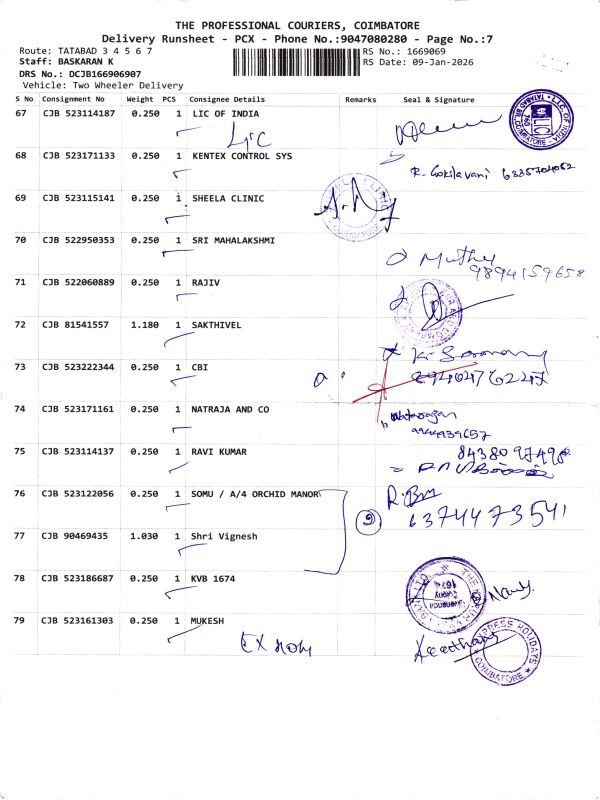 THE PROFESSIONAL COURIERS, COIMBATORE
Delivery Runsheet - PCX - Phone No.:9047080280 - Page No.:7
Route: TATABAD 3 4 5 6 7
RS No.: 1669069
Staff: BASKARAN K
RS Date: 09-Jan-2026
DRS No.: DCJB166906907
Vehicle: Two Wheeler Delivery
S No Consignment No Weight PCS Consignee Details Remarks Seal & Signature
67 CJB 523114187 0.250 1 LIC OF INDIA
LIC
68 CJB 523171133 0.250 1 KENTEX CONTROL SYS
R. Gokilavani
69 CJB 523115141 0.250 1 SHEELA CLINIC
70 CJB 522950353 0.250 1 SRI MAHALAKSHMI
Muthu
9894159658
71 CJB 522060889 0.250 1 RAJIV
72 CJB 81541557 1.180 1 SAKTHIVEL
73 CJB 523222344 0.250 1 CBI
74 CJB 523171161 0.250 1 NATRAJA AND CO
75 CJB 523114137 0.250 1 RAVI KUMAR
76 CJB 523122056 0.250 1 SOMU / A/4 ORCHID MANOR
6374473541
77 CJB 90469435 1.030 1 Shri Vignesh
78 CJB 523186687 0.250 1 KVB 1674
79 CJB 523161303 0.250 1 MUKESH